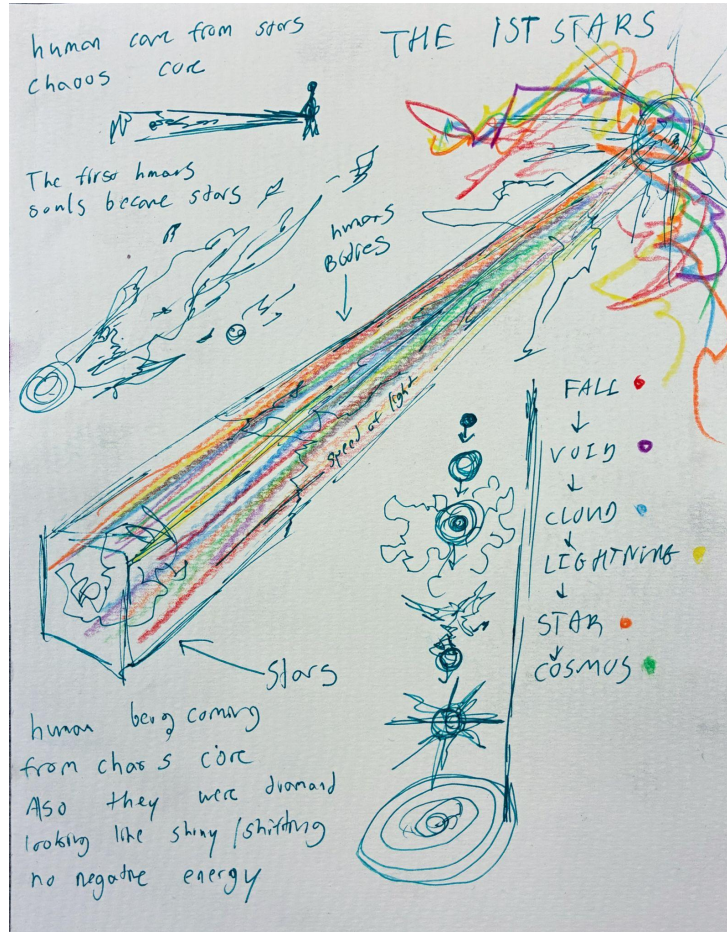 THE 1ST STARS
human come from stars
chaoos core
The first hmans
souls become stars
humans
Bodies
speed of light
FALL
VOID
CLOUD
LIGHTNING
STAR
COSMUS
stars
human being coming
from chaos core
Also they were diamand
looking like shiny/shifting
no negative energy